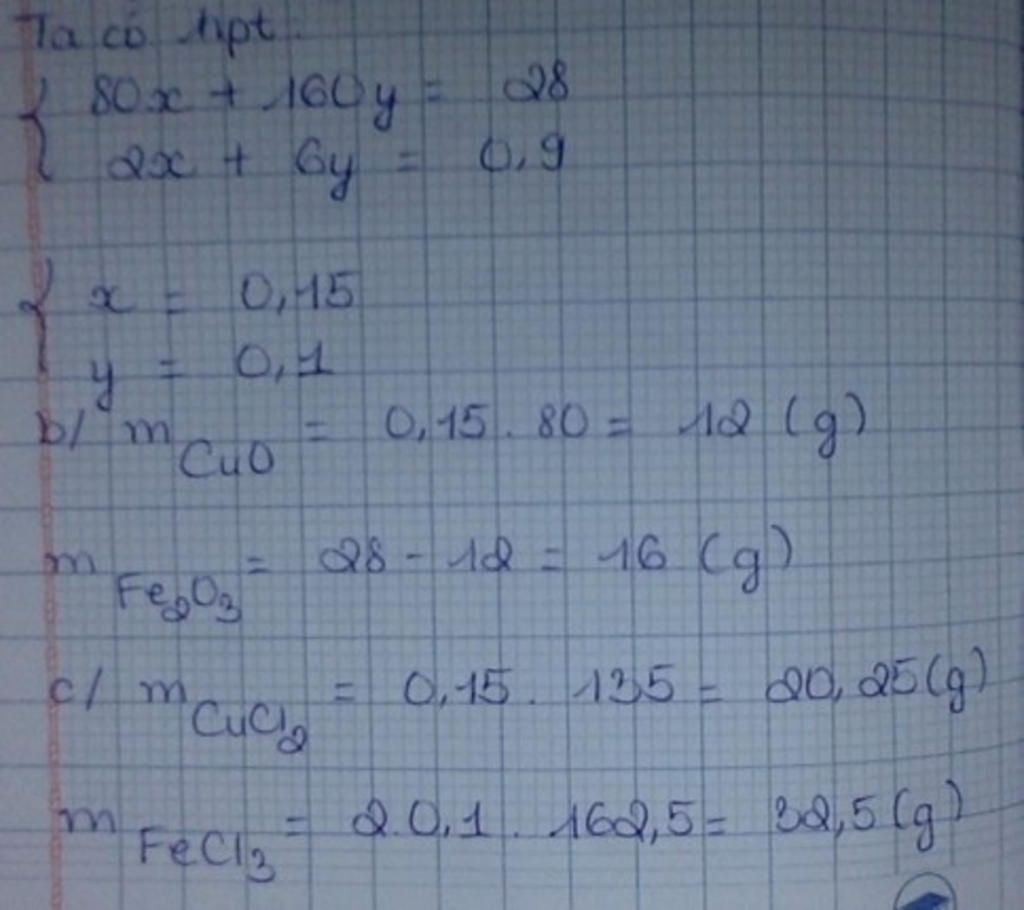 Ta có hpt
80x + 160y = 28
2x + 6y = 0,9
x = 0,15
y = 0,1
b/ m CuO = 0,15 . 80 = 12 (g)
m Fe₂O₃ = 28 - 12 = 16 (g)
c/ m CuCl₂ = 0,15 . 135 = 20,25 (g)
m FeCl₃ = 2.0,1 . 162,5 = 32,5 (g)